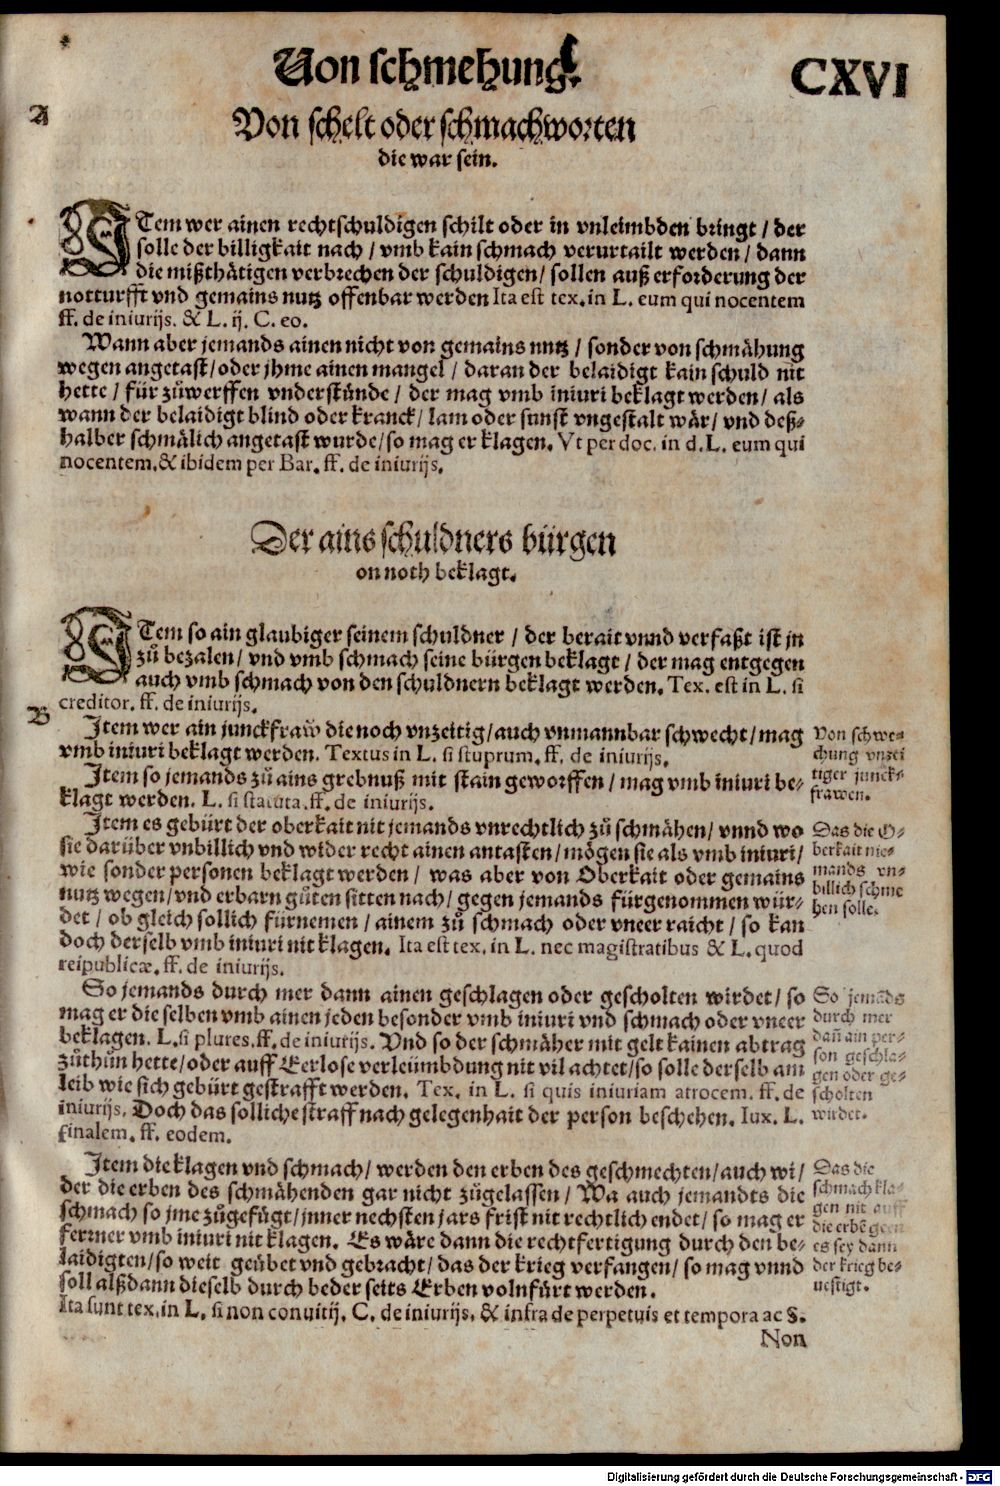 Von schmehung.
CXVI
A
Von schelt oder schmachworten
die war sein.
ITem wer ainen rechtschuldigen schilt oder in vnleimbden bringt / der
solle der billigkait nach / vmb kain schmach verurtailt werden / dann
die mißthätigen verbrechen der schuldigen / sollen auß erforderung der
notturfft vnd gemains nutz offenbar werden Ita est tex. in L. eum qui nocentem
ff. de iniurijs. & L. ij. C. eo.
Wann aber jemands ainen nicht von gemains nntz / sonder von schmähung
wegen angetast / oder jhme ainen mangel / daran der belaidigt kain schuld nit
hette / für zůwerffen vnderstünde / der mag vmb iniuri beklagt werden / als
wann der belaidigt blind oder kranck / lam oder sunst vngestalt wär / vnd deß-
halber schmälich angetast wurde / so mag er klagen. Vt per doc. in d. L. eum qui
nocentem. & ibidem per Bar. ff. de iniurijs.
Der ains schuldners bürgen
on noth beklagt.
ITem so ain glaubiger seinem schuldner / der berait vnnd verfaßt ist jn
zů bezalen / vnd vmb schmach seine bürgen beklagt / der mag entgegen
auch vmb schmach von den schuldnern beklagt werden. Tex. est in L. si
creditor. ff. de iniurijs.
B
Item wer ain junckfraw die noch vnzeitig / auch vnmannbar schwecht / mag
vmb iniuri beklagt werden. Textus in L. si stuprum. ff. de iniurijs.
Von schwe-
chung vnzei
tiger junck-
frawen.
Item so jemands zů ains grebnuß mit stain geworffen / mag vmb iniuri be-
klagt werden. L. si statuta. ff. de iniurijs.
Item es gebürt der oberkait nit jemands vnrechtlich zů schmähen / vnnd wo
sie darüber vnbillich vnd wider recht ainen antasten / mögen sie als vmb iniuri /
wie sonder personen beklagt werden / was aber von Oberkait oder gemains
nutz wegen / vnd erbarn gůten sitten nach / gegen jemands fürgenommen wür-
det / ob gleich sollich fürnemen / ainem zů schmach oder vneer raicht / so kan
doch derselb vmb iniuri nit klagen. Ita est tex. in L. nec magistratibus & L. quod
reipublicæ. ff. de iniurijs.
Das die O-
berkait nie-
mands vn-
billich schme
hen solle.
So jemands durch mer dann ainen geschlagen oder gescholten wirdet / so
mag er die selben vmb ainen jeden besonder vmb iniuri vnd schmach oder vneer
beklagen. L. si plures. ff. de iniurijs. Vnd so der schmäher mit gelt kainen abtrag
zůthůn hette / oder auff Eerlose verleümbdung nit vil achtet / so solle derselb am
leib wie sich gebürt gestrafft werden. Tex. in L. si quis iniuriam atrocem. ff. de
iniurijs. Doch das solliche straff nach gelegenhait der person beschehen. Iux. L.
finalem. ff. eodem.
So jemāds
durch mer
dañ ain per-
son geschla-
gen oder ge-
scholten
wirdet.
Item die klagen vnd schmach / werden den erben des geschmechten / auch wi /
der die erben des schmähenden gar nicht zůgelassen / Wa auch jemandts die
schmach so jme zůgefügt / jnner nechsten jars frist nit rechtlich endet / so mag er
ferrner vmb iniuri nit klagen. Es wäre dann die rechtfertigung durch den be-
laidigten / so weit geübet vnd gebracht / das der krieg verfangen / so mag vnnd
soll alßdann dieselb durch beder seits Erben volnfürt werden.
Ita sunt tex. in L. si non conuitij. C. de iniurijs. & infra de perpetuis et tempora ac §.
Das die
schmach kla-
gen nit auff
die erbē geen
es sey dann
der krieg be-
uestigt.
Non
Digitalisierung gefördert durch die Deutsche Forschungsgemeinschaft - DFG